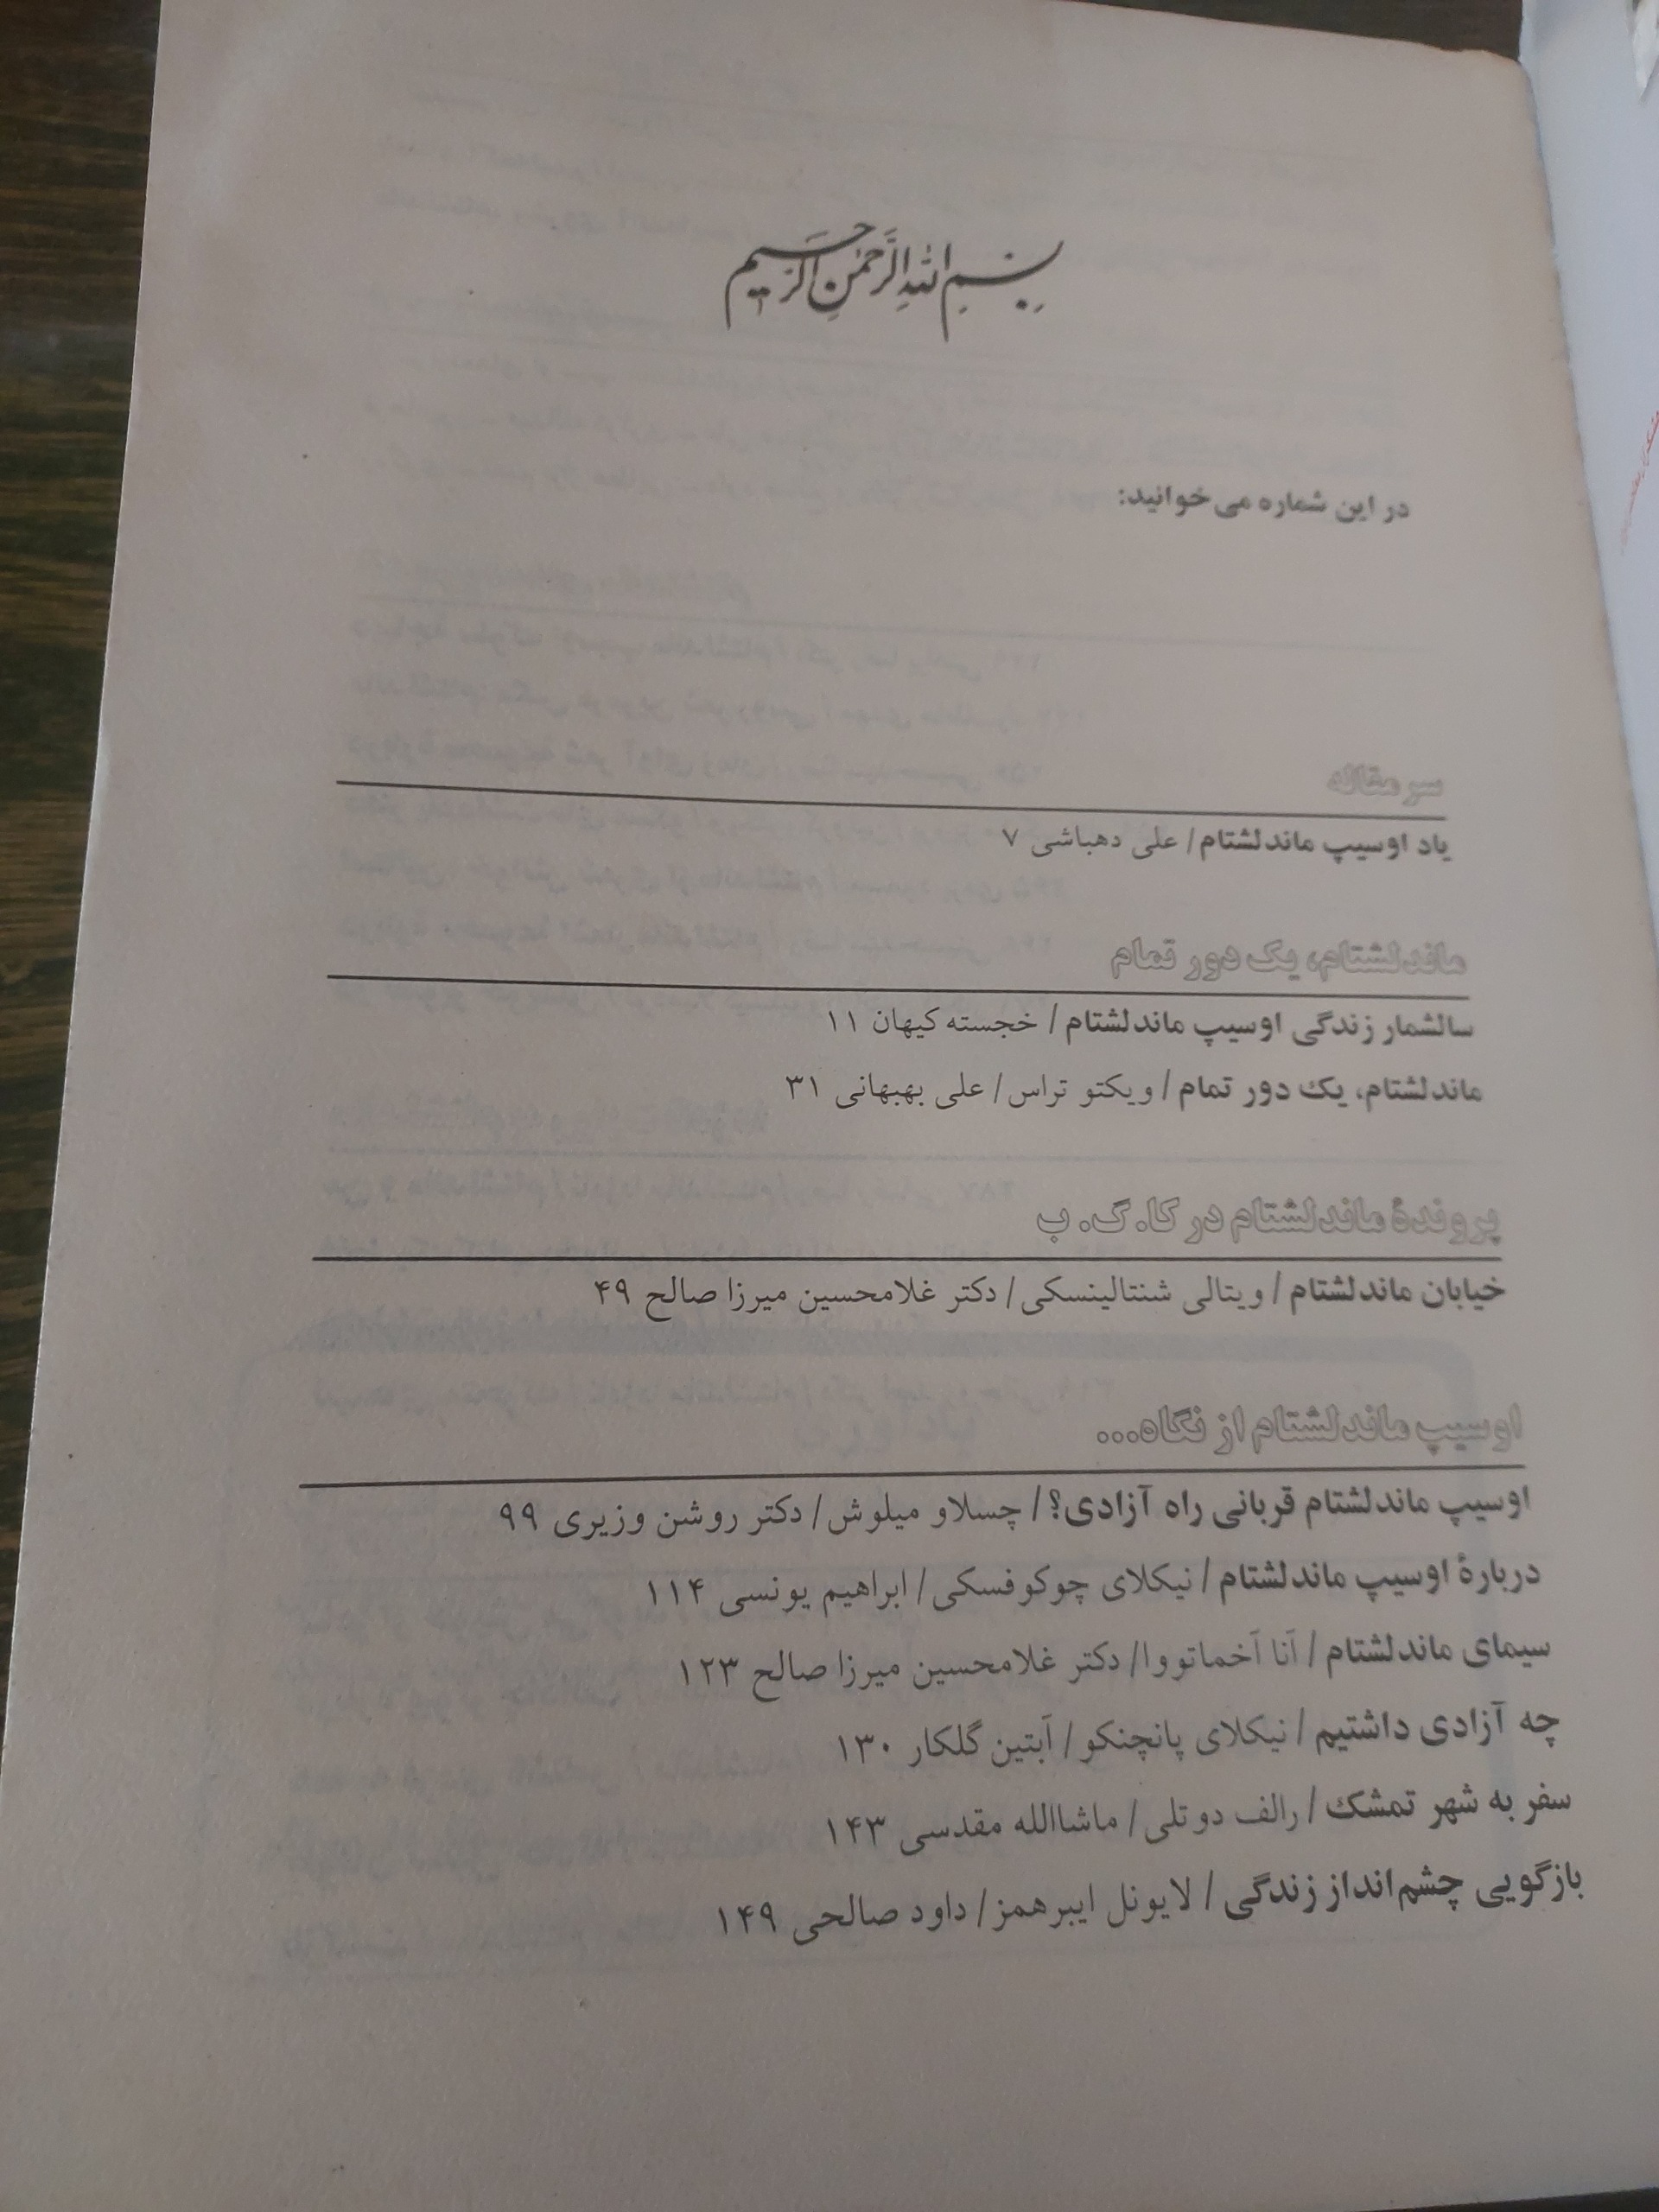 بسم الله الرحمن الرحیم
در این شماره می‌خوانید:
سرمقاله
یاد اوسیپ ماندلشتام / علی دهباشی ۷
ماندلشتام، یک دور تمام
سالشمار زندگی اوسیپ ماندلشتام / خجسته کیهان ۱۱
ماندلشتام، یک دور تمام / ویکتو تراس / علی بهبهانی ۳۱
پروندهٔ ماندلشتام در کا. گ. ب
خیابان ماندلشتام / ویتالی شنتالینسکی / دکتر غلامحسین میرزا صالح ۴۹
اوسیپ ماندلشتام از نگاه...
اوسیپ ماندلشتام قربانی راه آزادی؟ / چسلاو میلوش / دکتر روشن وزیری ۹۹
دربارهٔ اوسیپ ماندلشتام / نیکلای چوکوفسکی / ابراهیم یونسی ۱۱۴
سیمای ماندلشتام / آنا آخماتووا / دکتر غلامحسین میرزا صالح ۱۲۳
چه آزادی داشتیم / نیکلای پانچنکو / آبتین گلکار ۱۳۰
سفر به شهر تمشک / رالف دوتلی / ماشاالله مقدسی ۱۴۳
بازگویی چشم‌انداز زندگی / لایونل ایبرهمز / داود صالحی ۱۴۹